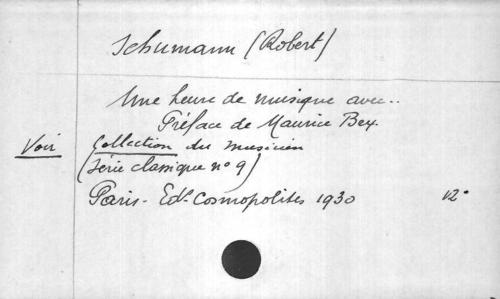 Schumann (Robert)
Une heure de musique avec..
Préface de Maurice Bex.
Voir Collection du musicien
(Série classique n° 9)
Paris - Edns Cosmopolites 1930 12°